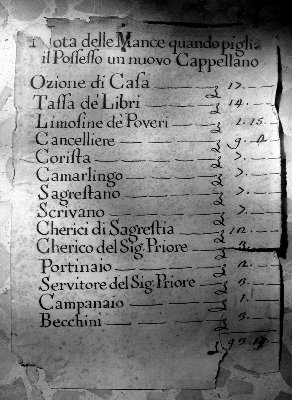 Nota delle Mance quando pigli
il Possesso un nuovo Cappellano
Ozione di Casa 17.
Tassa de' Libri 14.
Limosine de' Poveri 1.15.
Cancelliere 9.
Corista 7.
Camarlingo 7.
Sagrestano 7.
Scrivano 7.
Cherici di Sagrestia
Cherico del Sig: Priore
Portinaio
Servitore del Sig: Priore 3.
Campanaio 1.
Becchini 3.